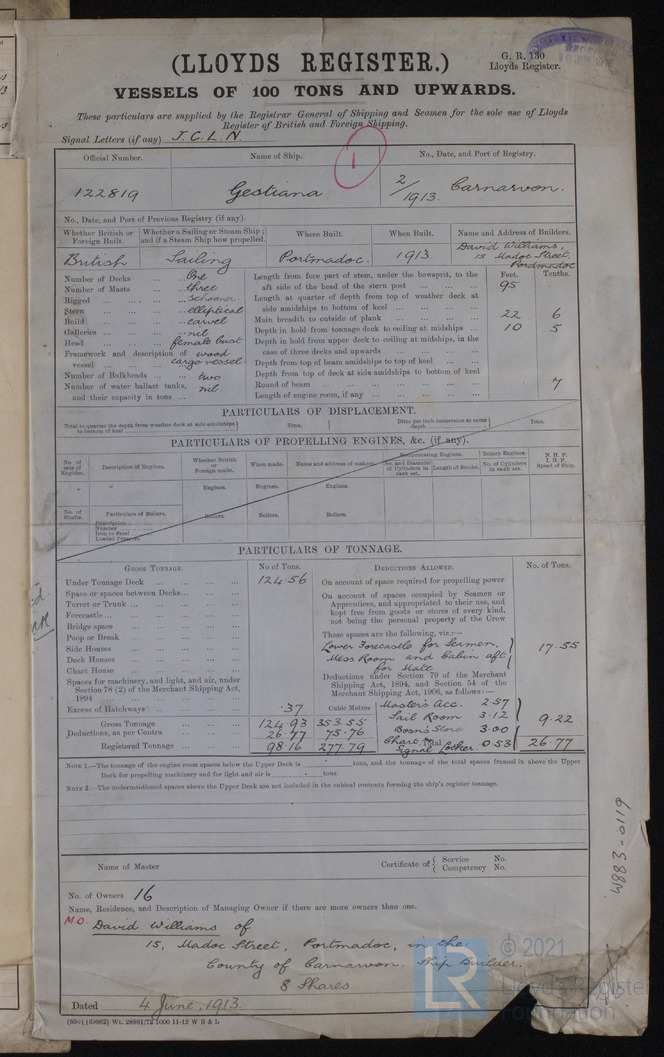 (LLOYDS REGISTER.)
G. R. 130
Lloyds Register.
VESSELS OF 100 TONS AND UPWARDS.
These particulars are supplied by the Registrar General of Shipping and Seamen for the sole use of Lloyds
Register of British and Foreign Shipping.
Signal Letters (if any) J.C.L.N.
1
Official Number. Name of Ship. No., Date, and Port of Registry.
122819 Gestiana 2/1913. Carnarvon.
No., Date, and Port of Previous Registry (if any).
Whether British or Foreign Built. Whether a Sailing or Steam Ship; and if a Steam Ship how propelled. Where Built. When Built. Name and Address of Builders.
British Sailing Portmadoc. 1913. David Williams, 15 Madoc Street, Portmadoc
Number of Decks ... ... One
Number of Masts ... ... three
Rigged ... ... ... schooner.
Stern ... ... ... elliptical
Build ... ... ... carvel
Galleries ... ... ... nil
Head ... ... ... female bust
Framework and description of vessel ... ... ... wood cargo vessel.
Number of Bulkheads ... ... two
Number of water ballast tanks, and their capacity in tons ... nil.
Feet. Tenths.
Length from fore part of stem, under the bowsprit, to the aft side of the head of the stern post ... ... 95
Length at quarter of depth from top of weather deck at side amidships to bottom of keel ... ... ...
Main breadth to outside of plank ... ... ... 22 6
Depth in hold from tonnage deck to ceiling at midships ... 10 5
Depth in hold from upper deck to ceiling at midships, in the case of three decks and upwards ... ... ...
Depth from top of beam amidships to top of keel ... ...
Depth from top of deck at side amidships to bottom of keel
Round of beam ... ... ... ... ... 7
Length of engine room, if any ... ... ... ...
PARTICULARS OF DISPLACEMENT.
Total to quarter the depth from weather deck at side amidships to bottom of keel Tons. Ditto per inch immersion at same depth Tons.
PARTICULARS OF PROPELLING ENGINES, &c. (if any).
No. of sets of Engines. Description of Engines. Whether British or Foreign made. When made. Name and address of makers. Reciprocating Engines. Rotary Engines. N. H. P. I. H. P. Speed of Ship.
No. and Diameter of Cylinders in each set. Length of Stroke. No. of Cylinders in each set.
Engines. Engines. Engines.
No. of Shafts. Particulars of Boilers. Boilers. Boilers. Boilers.
Description
Number
Iron or Steel
Loaded Pressure
PARTICULARS OF TONNAGE.
GROSS TONNAGE. No of Tons. DEDUCTIONS ALLOWED. No. of Tons.
Under Tonnage Deck ... ... ... 124.56
Space or spaces between Decks... ... ...
Turret or Trunk ... ... ... ...
Forecastle ... ... ... ... ...
Bridge space ... ... ... ...
Poop or Break ... ... ... ...
Side Houses ... ... ... ...
Deck Houses ... ... ... ...
Chart House ... ... ... ...
Spaces for machinery, and light, and air, under Section 78 (2) of the Merchant Shipping Act, 1894 ... ... ... ... ...
Excess of Hatchways ... ... ... .37
Cubic Metres
Gross Tonnage ... ... 124.93 353.55
Deductions, as per Contra ... ... 26.77 75.76
Registered Tonnage ... ... 98.16 277.79
On account of space required for propelling power
On account of spaces occupied by Seamen or Apprentices, and appropriated to their use, and kept free from goods or stores of every kind, not being the personal property of the Crew
These spaces are the following, viz.:—
Lower Forecastle for Seamen,
Mess Room and Cabin aft
for Mate 17.55
Deductions under Section 79 of the Merchant Shipping Act, 1894, and Section 54 of the Merchant Shipping Act, 1906, as follows:—
Master's Acc. 2.57
Sail Room 3.12
Bosn's Store 3.00 9.22
Chart &
Signal Locker 0.53
Total 26.77
NOTE 1.—The tonnage of the engine room spaces below the Upper Deck is tons, and the tonnage of the total spaces framed in above the Upper
Deck for propelling machinery and for light and air is tons.
NOTE 2.—The undermentioned spaces above the Upper Deck are not included in the cubical contents forming the ship's register tonnage.
Name of Master Certificate of { Service No. Competency No.
No. of Owners 16
Name, Residence, and Description of Managing Owner if there are more owners than one.
M.O. David Williams of
15, Madoc Street, Portmadoc, in the
County of Carnarvon. Ship Builder.
8 Shares
Dated 4 June, 1913.
W883-0119
© 2021
Lloyd's Register
Foundation
LR